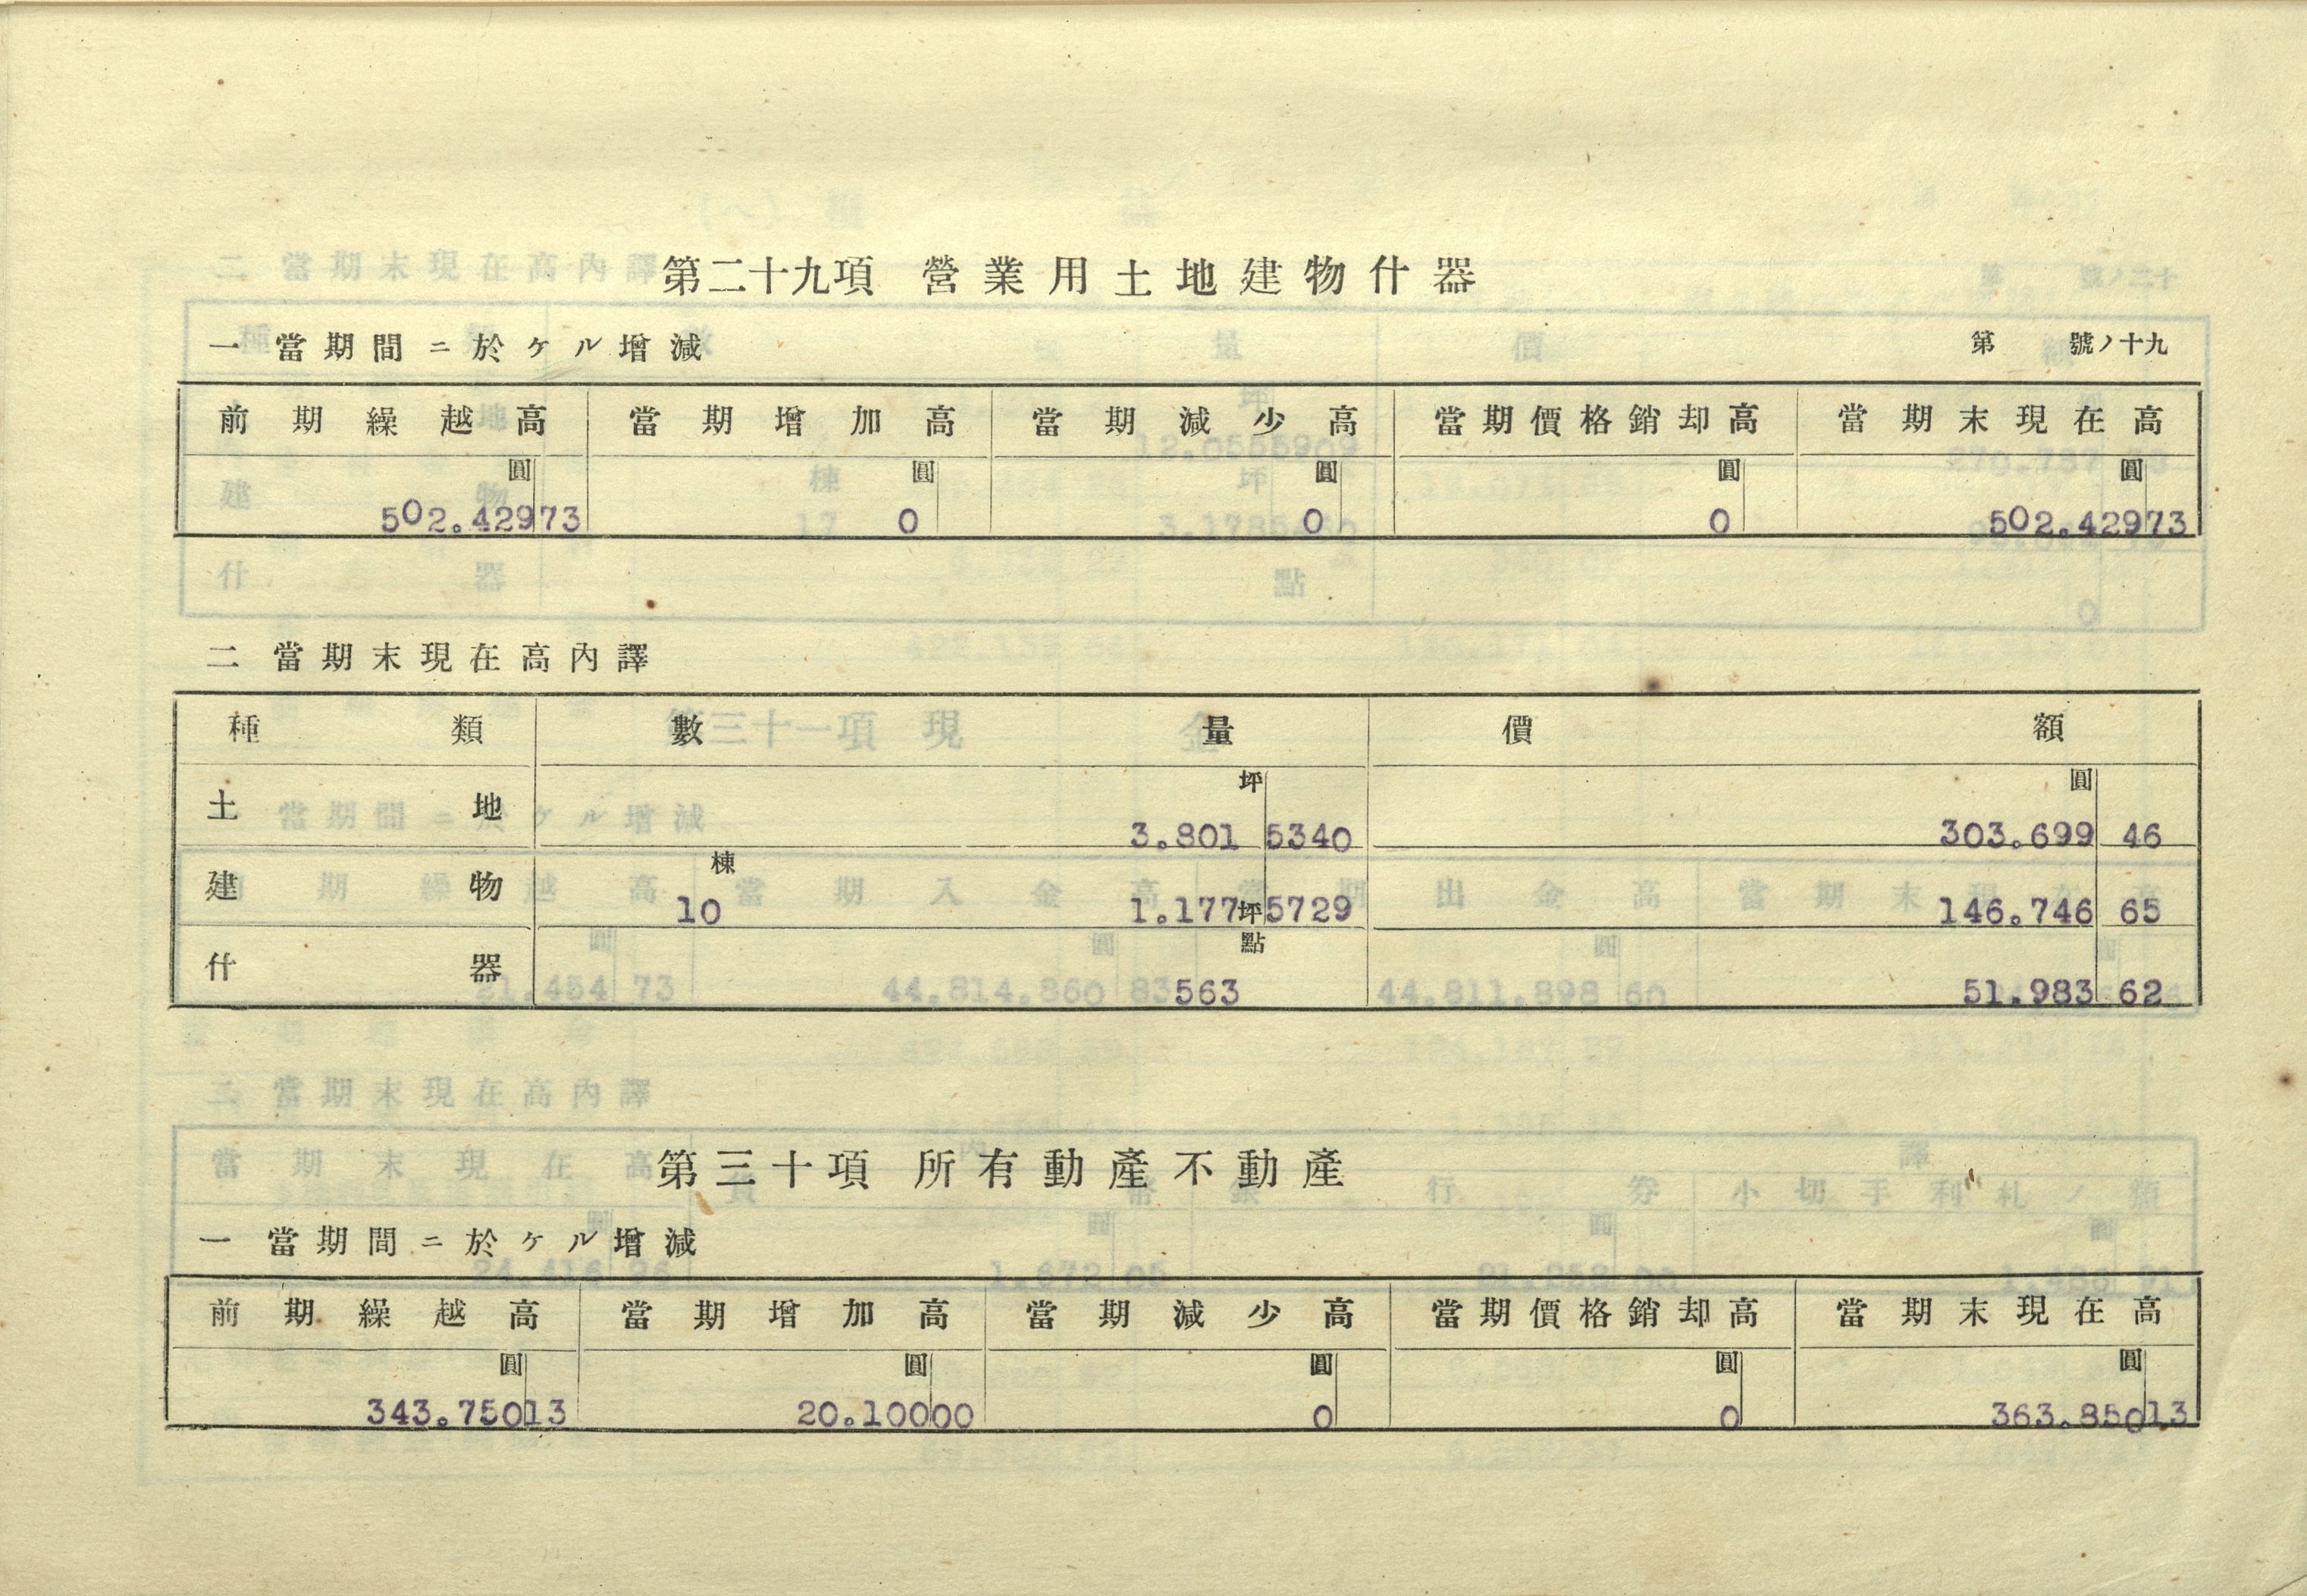 第二十九項 營業用土地建物什器
一 當期間ニ於ケル增減 第 號ノ十九
前期繰越高 當期增加高 當期減少高 當期價格銷却高 當期末現在高
圓 圓 圓 圓 圓
502.429 73 0 0 0 502.429 73
二 當期末現在高內譯
種類 數量 價額
坪 圓
土地 3.801 5340 303.699 46
棟
建物 10 1.177 坪 5729 146.746 65
點
什器 563 51.983 62
第三十項 所有動產不動產
一 當期間ニ於ケル增減
前期繰越高 當期增加高 當期減少高 當期價格銷却高 當期末現在高
圓 圓 圓 圓 圓
343.750 13 20.100 00 0 0 363.850 13